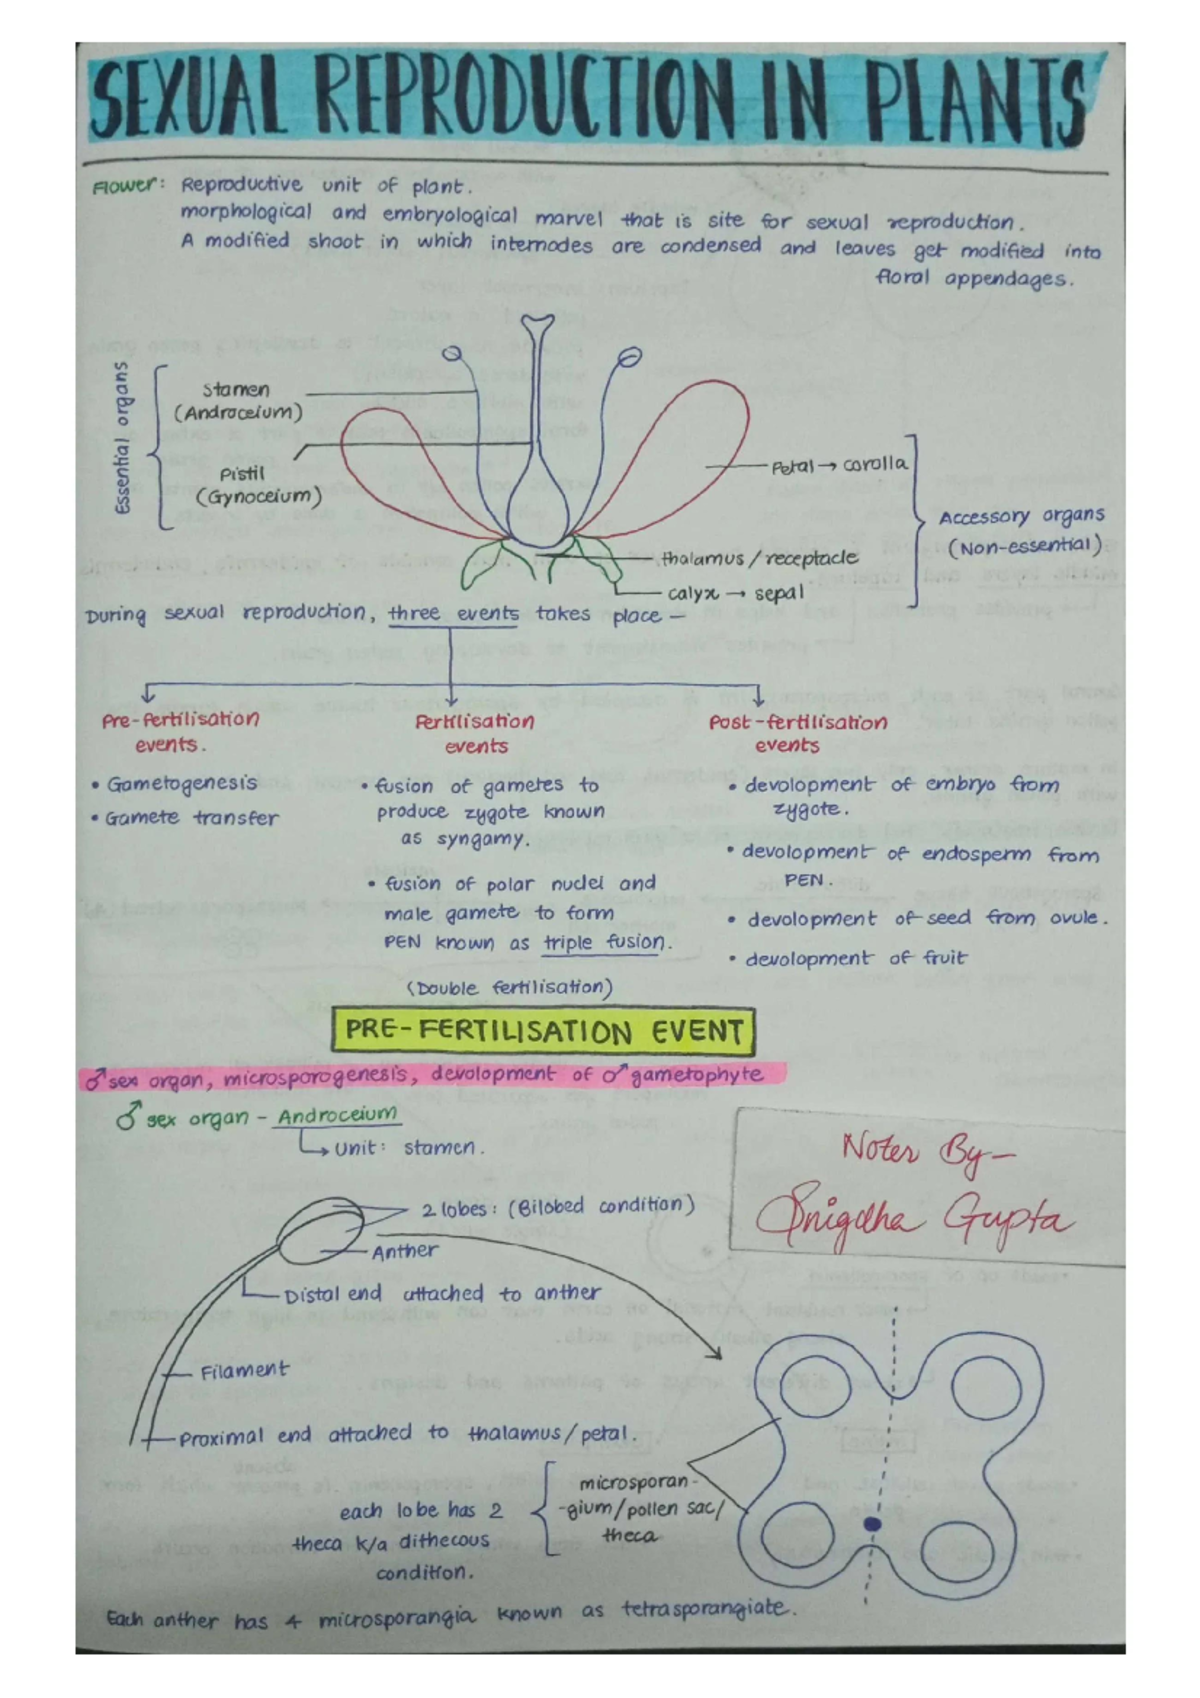 SEXUAL REPRODUCTION IN PLANTS
Flower: Reproductive unit of plant.
morphological and embryological marvel that is site for sexual reproduction.
A modified shoot in which internodes are condensed and leaves get modified into
floral appendages.
Essential organs
Stamen
(Androceium)
Pistil
(Gynoceium)
Petal → corolla
Accessory organs
(Non-essential)
thalamus / receptacle
calyx → sepal
During sexual reproduction, three events takes place —
Pre-fertilisation
events.
• Gametogenesis
• Gamete transfer
Fertilisation
events
• fusion of gametes to
produce zygote known
as syngamy.
• fusion of polar nuclei and
male gamete to form
PEN known as triple fusion.
(Double fertilisation)
Post-fertilisation
events
• devolopment of embryo from
zygote.
• devolopment of endosperm from
PEN.
• devolopment of seed from ovule.
• devolopment of fruit
PRE-FERTILISATION EVENT
♂ sex organ, microsporogenesis, devolopment of ♂ gametophyte
♂ sex organ - Androceium
↳ Unit: stamen.
Notes By-
Snigdha Gupta
2 lobes: (Bilobed condition)
Anther
Distal end attached to anther
Filament
Proximal end attached to thalamus/petal.
each lobe has 2
theca k/a dithecous
condition.
microsporan-
-gium/pollen sac/
theca
Each anther has 4 microsporangia known as tetrasporangiate.